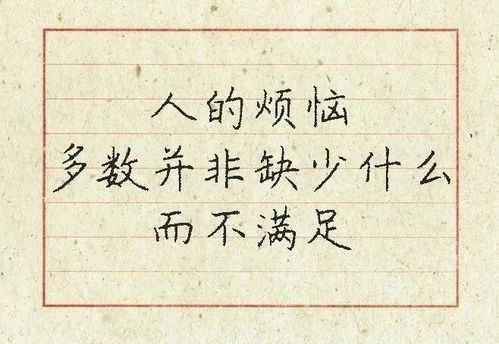 人的烦恼
多数并非缺少什么
而不满足